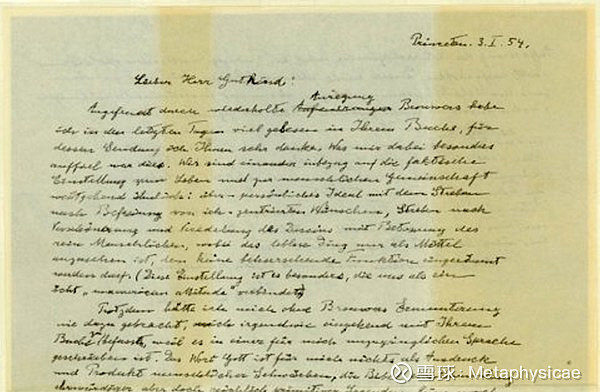 Princeton. 3. I. 54.
Lieber Herr Gutkind!
Anregung
Angefeuert durch wiederholte Brouwers habe
ich in den letzten Tagen viel gelesen in Ihrem Buche, für
dessen Sendung ich Ihnen sehr danke. Was mir dabei besonders
auffiel war dies. Wir sind einander inbezug auf die faktische
Einstellung zum Leben und zur menschlichen Gemeinschaft
weitgehend ähnlich: über-persönliches Ideal mit dem Streben
nach Befreiung von ich-zentrierten Wünschen, Streben nach
Verschönerung und Veredelung des Daseins mit Betonung des
rein Menschlichen, wobei das leblose Ding nur als Mittel
anzusehen ist, dem keine beherrschende Funktion eingeräumt
werden darf. (Diese Einstellung ist es besonders, die uns als ein
echt „unamerican attitude" verbindet)
Trotzdem hätte ich mich ohne Brouwers Ermunterung
nie dazu gebracht, mich irgendwie eingehend mit Ihrem
Buche zu befassen, weil es in einer für mich unzugänglichen Sprache
geschrieben ist. Das Wort Gott ist für mich nichts als Ausdruck
und Produkt menschlicher Schwächen, die Bibel
ehrwürdiger aber doch reichlich primitiver Legenden
雪球：Metaphysicae